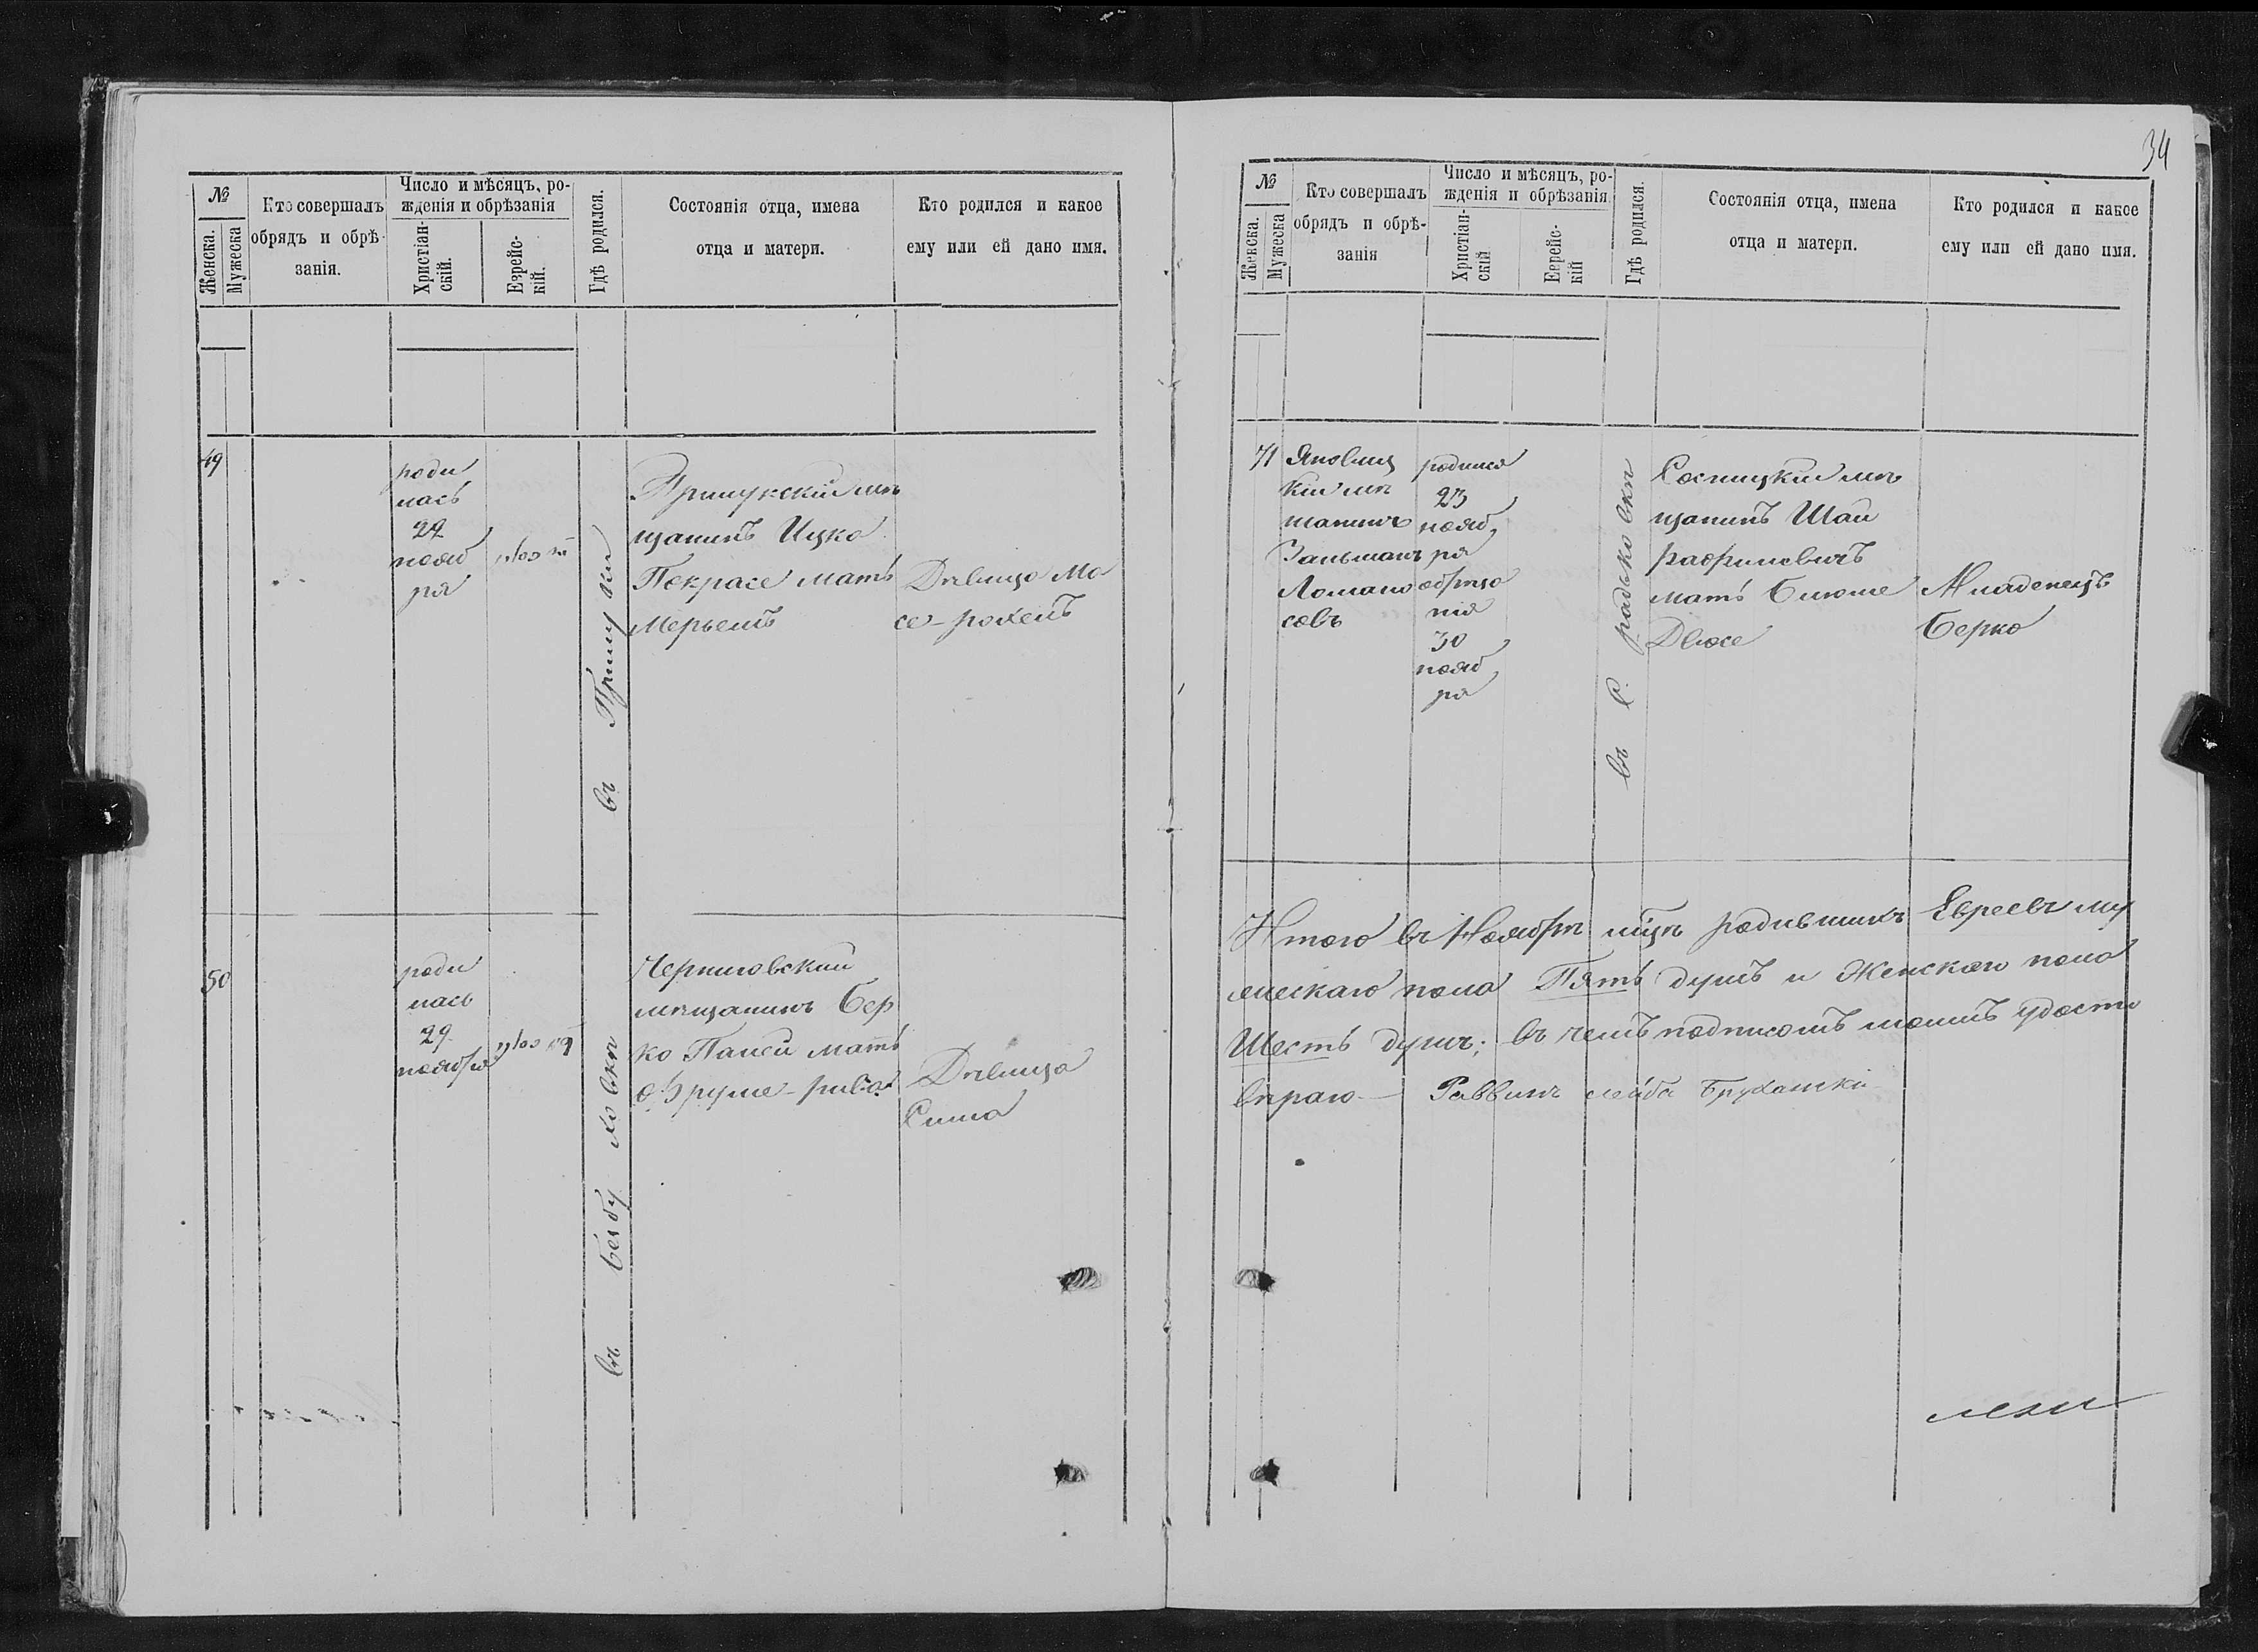 №
Женска.
Мужеска
Кто совершалъ
обрядъ и обрѣ-
занія.
Число и мѣсяцъ, ро-
жденія и обрѣзанія
Христіан-
скій.
Еврейс-
кій.
Гдѣ родился.
Состоянія отца, имена
отца и матери.
Кто родился и какое
ему или ей дано имя.
49
роди
лась
22
нояб
ря
כסלו
въ Прилуки
Прилукскій мѣ
щанинъ Ицко
Покрасе мать
Мерьемъ
Дѣвица Мо
се-рохель
50
роди
лась
29
ноября
כסלו
въ
Черниговскій
мѣщанинъ Бер
ко Палей мать
Фруме-рива
Дѣвица
Сима
34
№
Женска.
Мужеска
Кто совершалъ
обрядъ и обрѣ-
занія
Число и мѣсяцъ, ро-
жденія и обрѣзанія
Христіан-
скій
Еврейс-
кій
Гдѣ родился.
Состоянія отца, имена
отца и матери.
Кто родился и какое
ему или ей дано имя.
71
Яновиц
кій мѣ
щанинъ
Зальманъ
Ломано
совъ
родился
23
нояб,
ря
обрѣза
нія
30
нояб,
ря
въ с. радьковкѣ
Сосницкій мѣ
щанинъ Шай
мать Блюме
Двосе
Младенецъ
Берко
Итого въ Ноябрѣ мцѣ родившихъ Евреевъ му
жескаго пола Пять душъ и Женскаго пола
Шесть душъ; въ чемъ подписомъ моимъ удосто
вѣраю — Раввинъ лейба Бруханскій